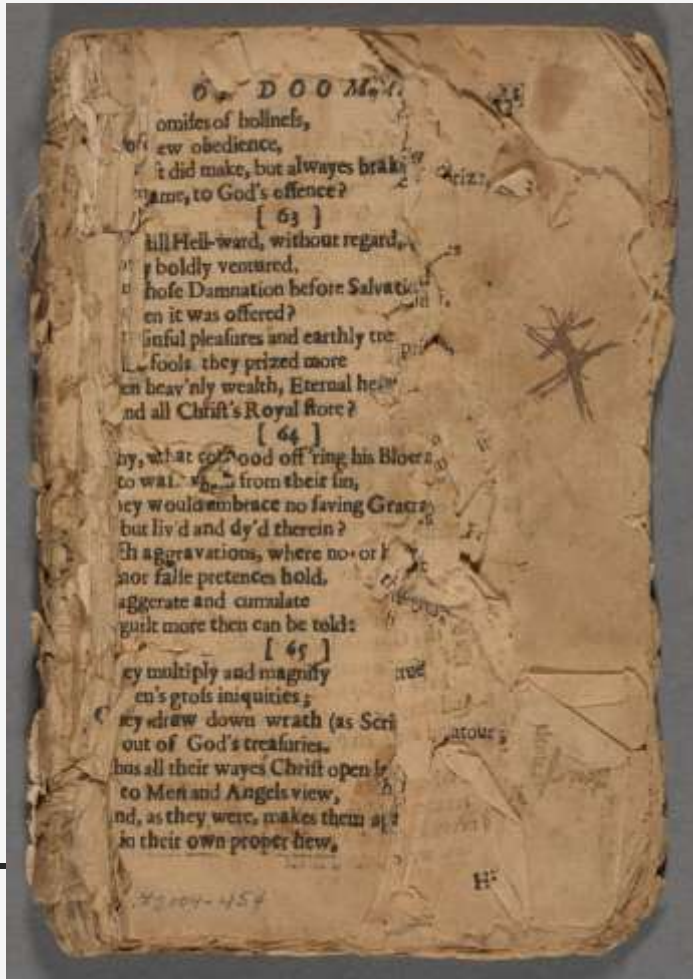 DOO
omiſes of holineſs,
ew obedience,
t did make, but alwayes brake
ame, to God's offence?
[ 63 ]
ill Hell-ward, without regard,
boldly ventured,
hoſe Damnation before Salvatio
en it was offered?
ſinful pleaſures and earthly tre
fools they prized more
en heav'nly wealth, Eternal he
nd all Chriſt's Royal ſtore?
[ 64 ]
hy, what ood off'ring his Bloe
to waſ from their ſin,
hey would embrace no ſaving Grace
but liv'd and dy'd therein?
ch aggravations, where no or
nor falſe pretences hold,
aggerate and cumulate
guilt more then can be told:
[ 65 ]
ey multiply and magnify
en's groſs iniquities;
hey draw down wrath (as Scri
out of God's treaſuries.
hus all their wayes Chriſt open l
to Men and Angels view,
nd, as they were, makes them ap
in their own proper hew,